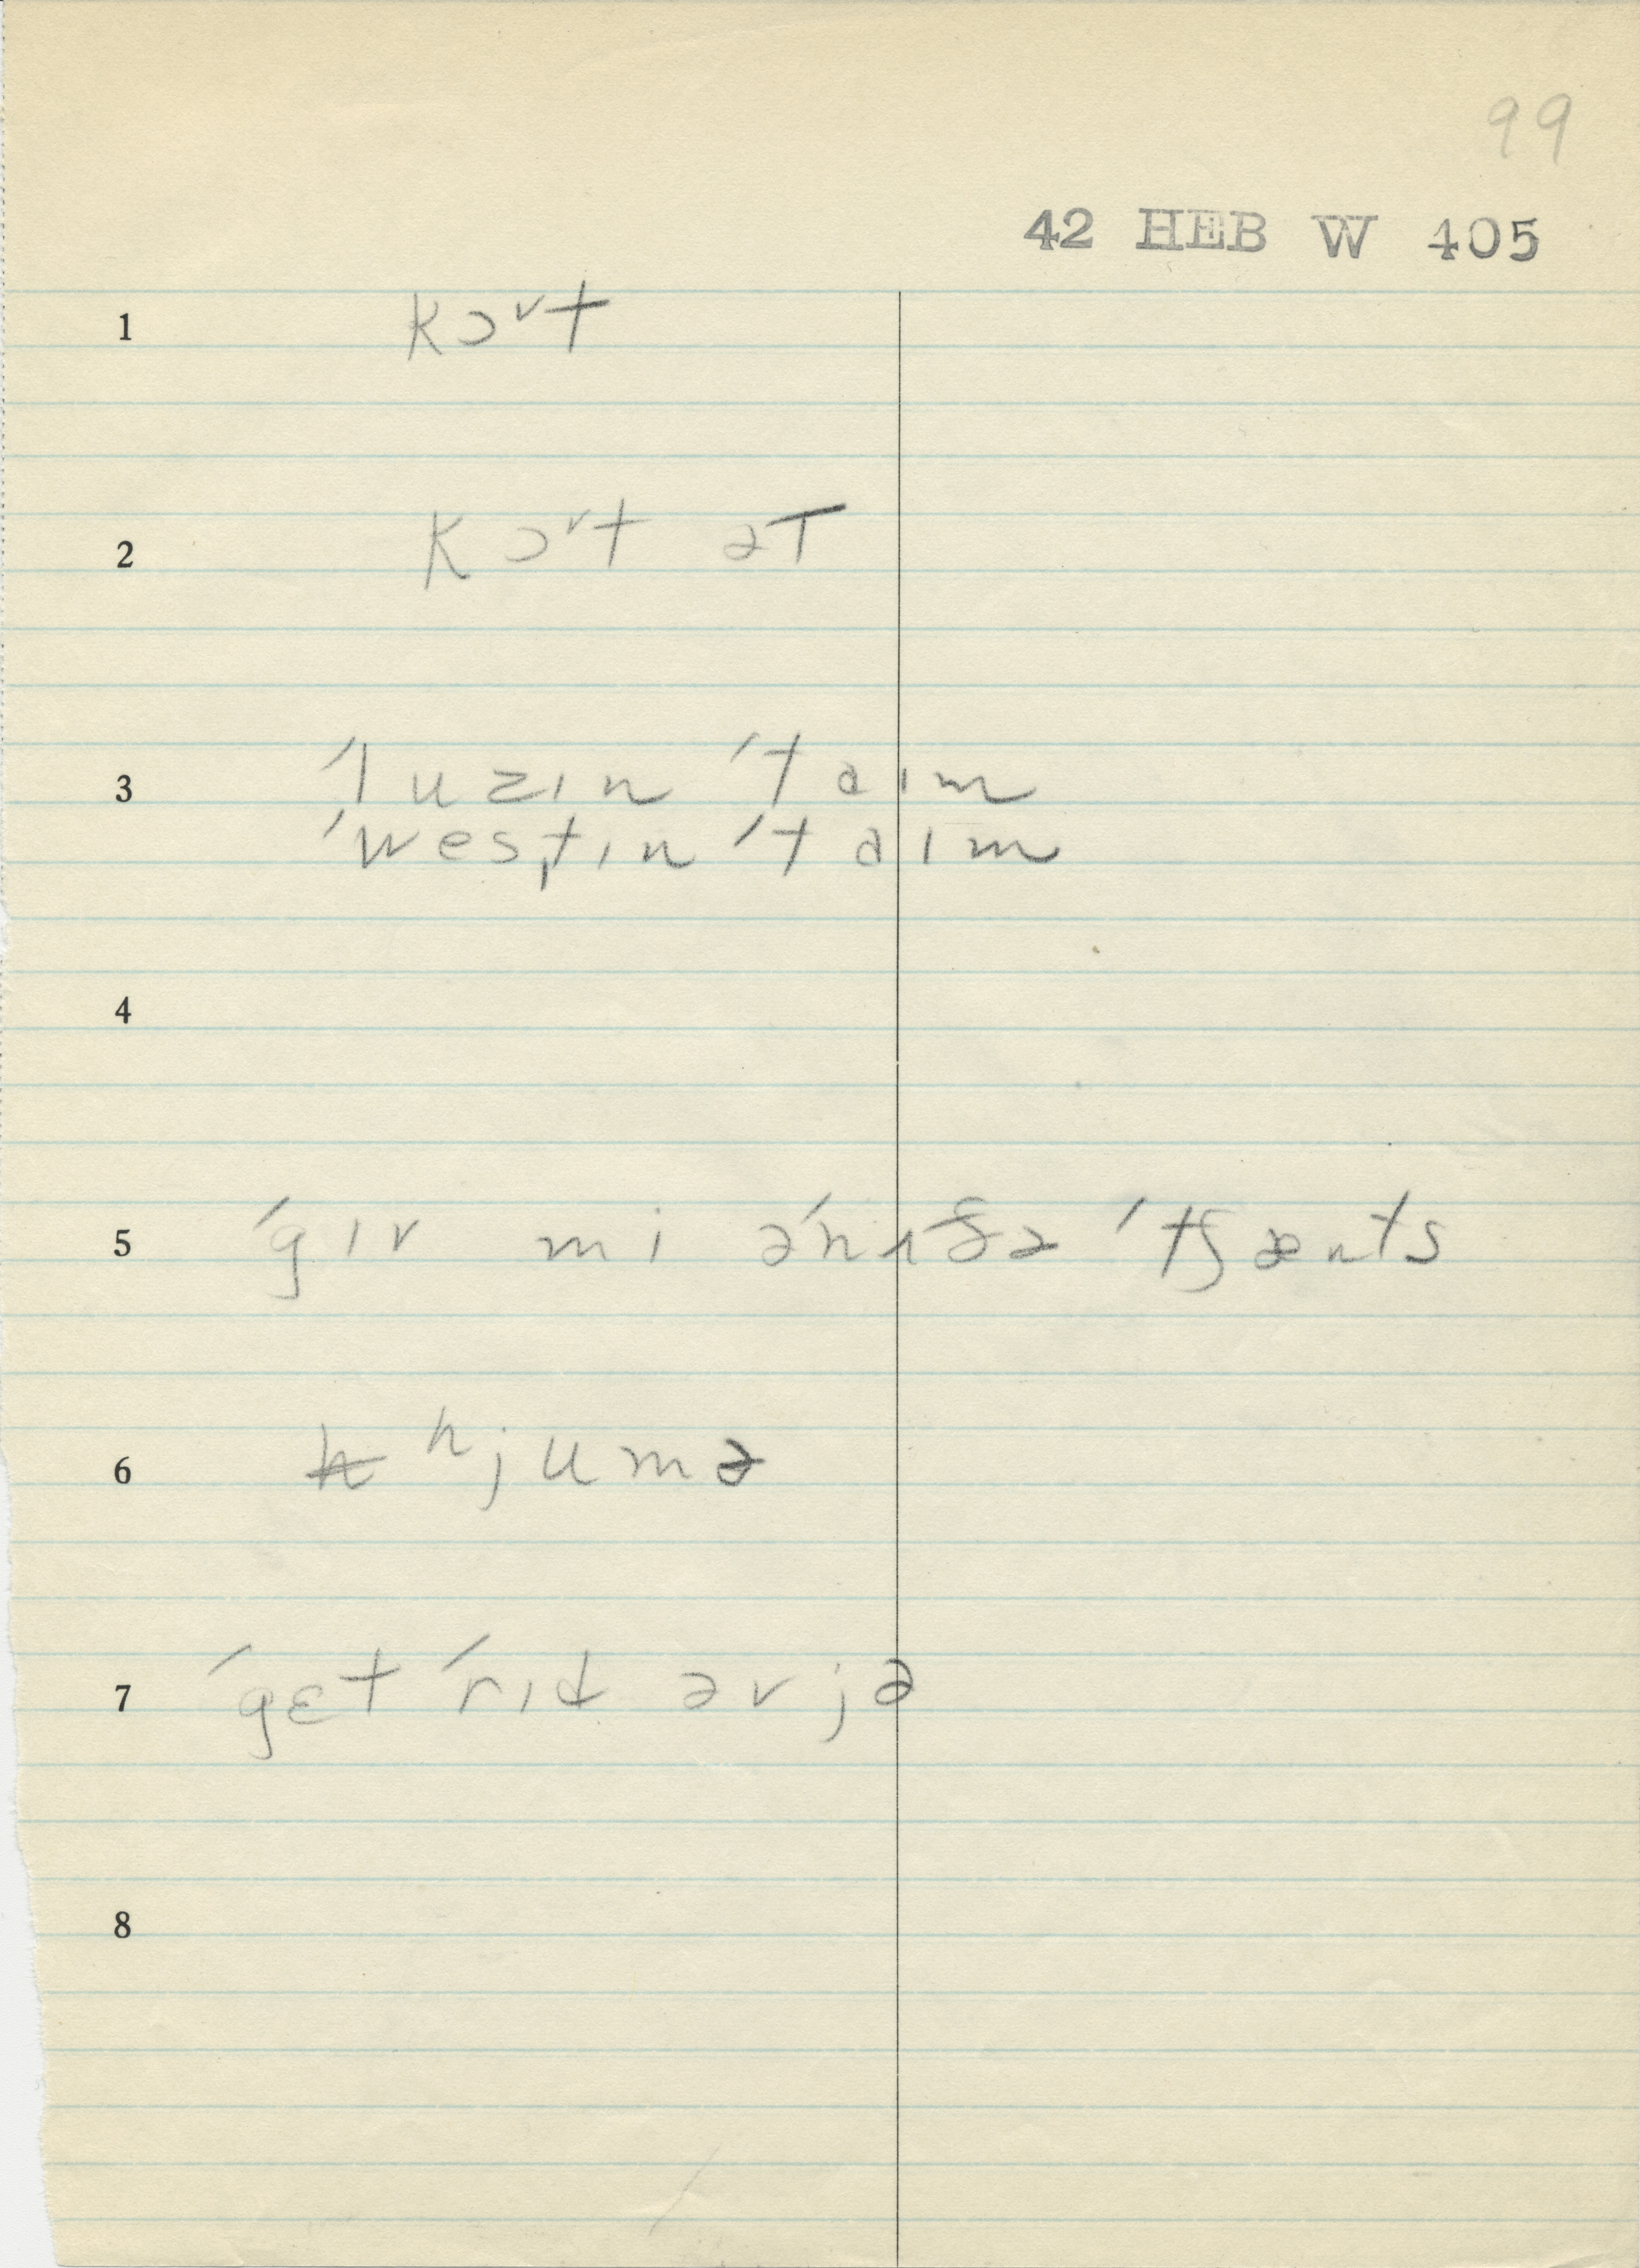 99
42 HEB W 405
1 kɔᵛt
2 kɔᵛt ət
3 ˈluzɪn ˈtaɪm
ˈwes̩tɪn ˈtaɪm
4
5 ˈgɪv mi əˈnʌðə ˈtʃænts
6 ʰjumə
7 ˈgɛt ˈrɪd əv jə
8